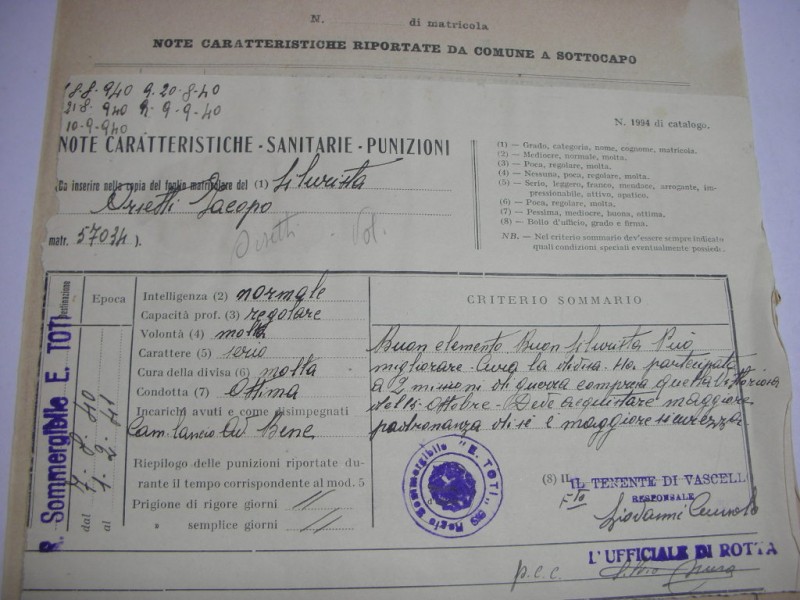 N. di matricola
NOTE CARATTERISTICHE RIPORTATE DA COMUNE A SOTTOCAPO
18-8-940 9. 20-8-40
21-8-940 9-9-40
10-9-940
N. 1994 di catalogo.
NOTE CARATTERISTICHE - SANITARIE - PUNIZIONI
Da inserire nella copia del foglio matricolare del (1) Silurista
Orsetti Jacopo
matr. 57034 ).
(1) — Grado, categoria, nome, cognome, matricola.
(2) — Mediocre, normale, molta.
(3) — Poca, regolare, molta.
(4) — Nessuna, poca, regolare, molta.
(5) — Serio, leggero, franco, mendace, arrogante, impressionabile, attivo, apatico.
(6) — Poca, regolare, molta.
(7) — Pessima, mediocre, buona, ottima.
(8) — Bollo d'ufficio, grado e firma.
NB. — Nel criterio sommario dev'essere sempre indicato
quali condizioni speciali eventualmente possiede.
Destinazione
R. Sommergibile E. TOTI
Epoca
dal 7-8-40
al 1-2-41
Intelligenza (2) normale
Capacità prof. (3) regolare
Volontà (4) molta
Carattere (5) serio
Cura della divisa (6) molta
Condotta (7) Ottima
Incarichi avuti e come disimpegnati
Cam. lancio AV Bene
Riepilogo delle punizioni riportate durante
il tempo corrispondente al mod. 5
Prigione di rigore giorni //
» semplice giorni //
CRITERIO SOMMARIO
Buon elemento Buon Silurista Può
migliorare - Cura la divisa - Ha partecipato
a 2 missioni di guerra compresa quella vittoriosa
del 15 Ottobre - Deve acquistare maggiore
padronanza di sè e maggiore sicurezza.
Regio Sommergibile "E. TOTI"
(8) IL TENENTE DI VASCELLO
RESPONSALE
Fto
Giovanni
L'UFFICIALE DI ROTTA
p.c.c.